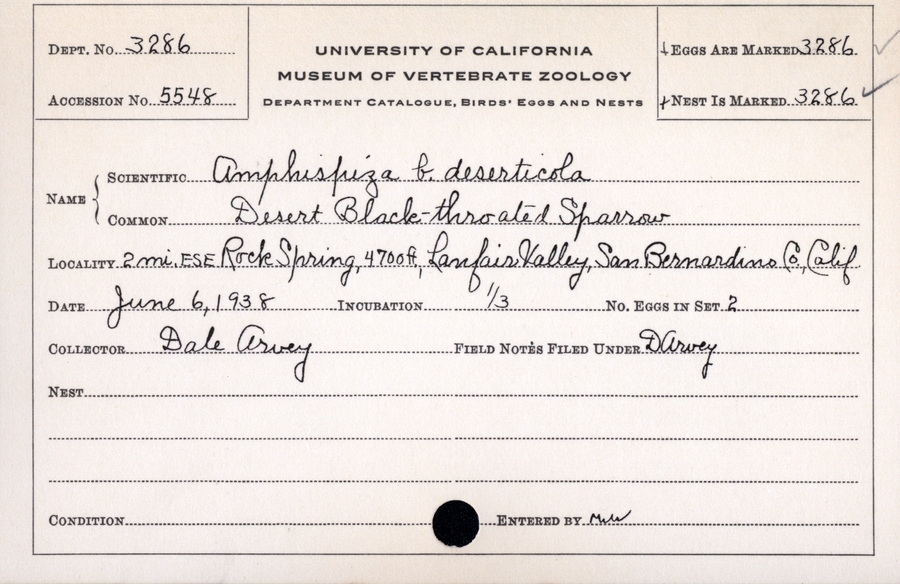 DEPT. No. 3286
ACCESSION No. 5548
UNIVERSITY OF CALIFORNIA
MUSEUM OF VERTEBRATE ZOOLOGY
DEPARTMENT CATALOGUE, BIRDS' EGGS AND NESTS
EGGS ARE MARKED 3286
NEST IS MARKED 3286
NAME
SCIENTIFIC Amphispiza b. deserticola
COMMON Desert Black-throated Sparrow
LOCALITY 2 mi. ESE Rock Spring, 4700 ft, Lanfair Valley, San Bernardino Co, Calif
DATE June 6, 1938 INCUBATION 1/3 No. EGGS IN SET 2
COLLECTOR Dale Arvey FIELD NOTES FILED UNDER DArvey
NEST
CONDITION ENTERED BY